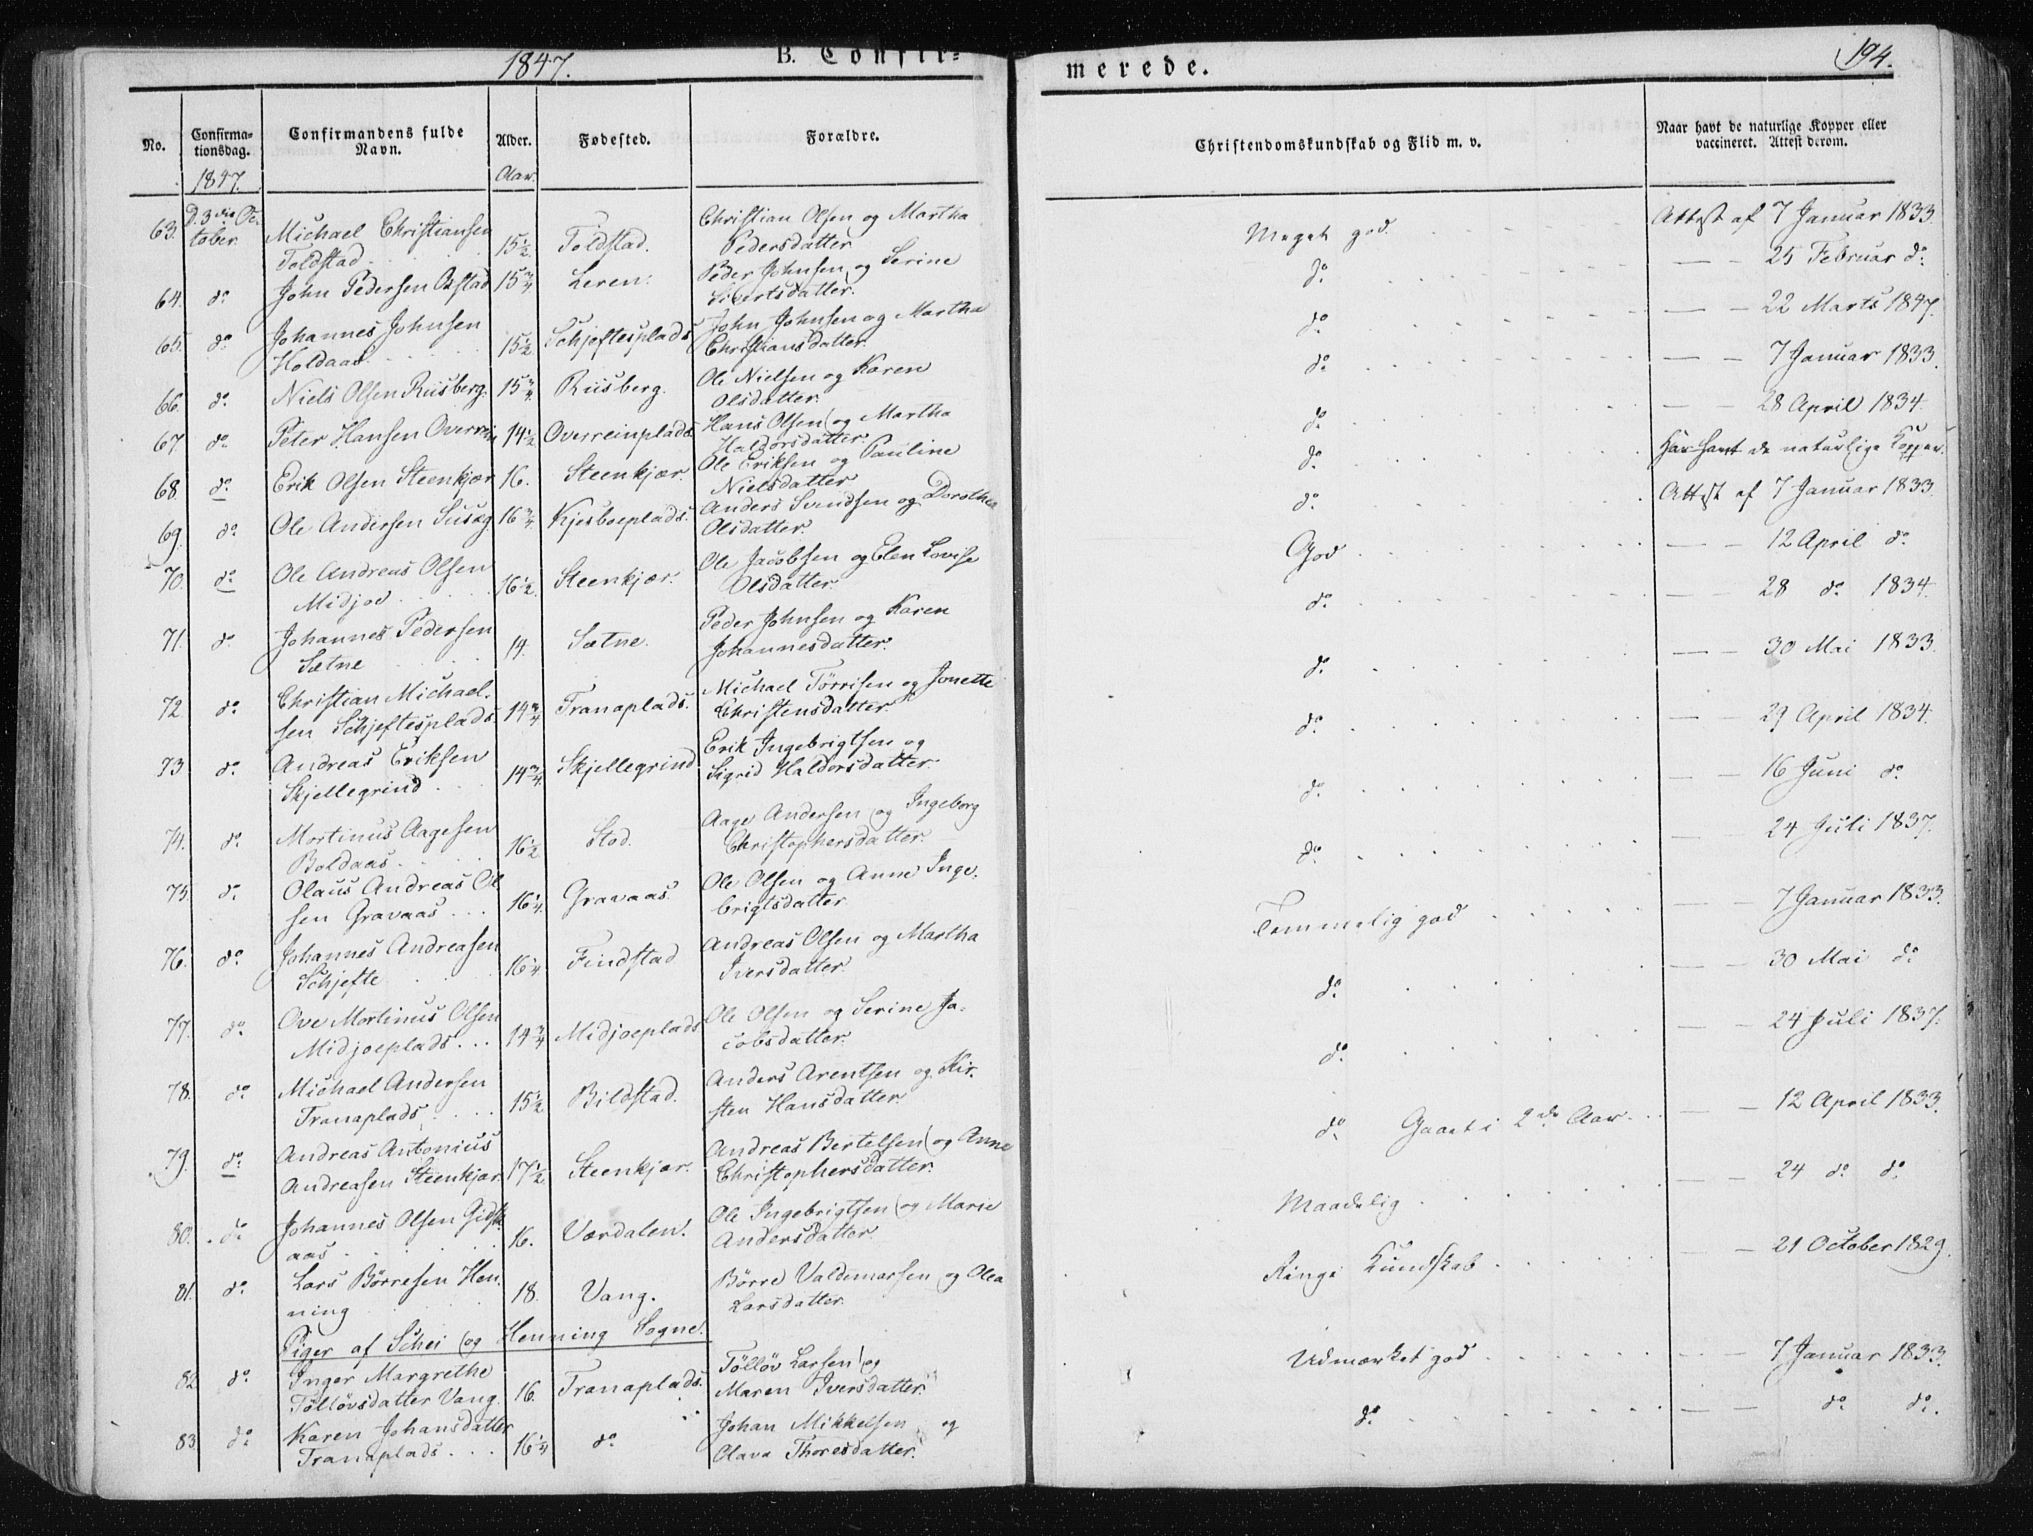 1847.
B. Confir=
merede.
194.
No.
Confirma-
tionsdag.
Confirmandens fulde
Navn.
Alder.
Fødested.
Forældre.
Christendomskundskab og Flid m. v.
Naar havt de naturlige Kopper eller
vaccineret. Attest derom.
1847.
Aar.
63. D. 3die Oc-
tober. Michael Christiansen
Toldstad 15½ Toldstad. Christian Olsen og Martha
Pedersdatter. Meget god. Attest af 7 Januar 1833.
64. do John Pedersen Østad 15¾ Leren. Peder Johnsen og Serine
Sivertsdatter. do. — — 25 Februar do.
65. do Johannes Johnsen
Holdaas 15½ Schjeftesplads John Johnsen og Martha
Christiansdatter. do. — — 22 Marts 1847.
66. do. Niels Olsen Riisberg. 15¾ Riisberg. Ole Nielsen og Karen
Olsdatter. do. — — 7 Januar 1833.
67. do. Peter Hansen Overrein 14½ Overreinplads. Hans Olsen og Martha
Haldorsdatter. do. — — 28 April 1834.
68 do. Erik Olsen Steenkjær 16. Steenkjær. Ole Eriksen og Pauline
Nielsdatter do. Har havt de naturlige Kopper.
69. do. Ole Andersen Susæg 16¾ Kjesboeplads. Anders Svendsen og Dorothea
Olsdatter. do. Attest af 7 Januar 1833.
70. do. Ole Andreas Olsen
Midjoe 16½ Steenkjær. Ole Jacobsen og Elen Lovise
Olsdatter. God — — 12 April do.
71. do. Johannes Pedersen
Sætne 14. Sætne. Peder Johnsen og Karen
Johannesdatter. do. — — 28 do. 1834.
72. do. Christian Michael-
sen Schjeftesplads. 14¾ Tranaplads. Michael Tørrisen og Jonette
Christensdatter. do. — — 30 Mai 1833.
73 do. Andreas Eriksen
Skjellegrind 14¾ Skjellegrind Erik Ingebrigtsen og
Sigrid Haldorsdatter. do. — — 29 April 1834.
74. do. Mortinus Aagesen
Boldaas 16½ Stod. Aage Andersen og Ingeborg
Christophersdatter. do. — — 16 Juni do.
75. do. Olaus Andreas Ol
sen Gravaas 16¼ Gravaas. Ole Olsen og Anne Inge-
brigtsdatter do. — — 24 Juli 1837.
76. do. Johannes Andreasen
Schjefte 16¼ Findstad Andreas Olsen og Martha
Iversdatter. Temmelig god — — 7 Januar 1833.
77. do. Ove Mortinus Olsen
Midjoeplads 14¾ Midjoeplads Ole Olsen og Serine Ja-
cobsdatter. do. — — 30 Mai do.
78. do. Michael Andersen
Tranaplads 15½ Bildstad. Anders Arentsen og Kir-
sten Hansdatter. do. — — 24 Juli 1837.
79. do. Andreas Antonius
Andreasen Steenkjær. 17½ Steenkjær. Andreas Bertelsen og Anne
Christophersdatter. do. Gaaet i 2de Aar. — — 12 April 1833.
80. do. Johannes Olsen Gidsk
aas 16. Værdalen. Ole Ingebrigtsen og Marie
Andersdatter. Maadelig — — 24 do. do.
81. do. Lars Børresen Hen-
ning 18. Vang. Børre Valdemarsen og Olea
Larsdatter. Ringe Kundskab — — 21 October 1829.
Piger af Schei og Henning Sogne.
82 do. Inger Margrethe
Tølløvsdatter Vang. 16. Tranaplads. Tølløv Larsen og
Maren Iversdatter. Udmærket god — — 7 Januar 1833.
83. do. Karen Johansdatter
Tranaplads 16¼ do. Johan Mikkelsen og
Olava Thoresdatter. do. — — do. do.